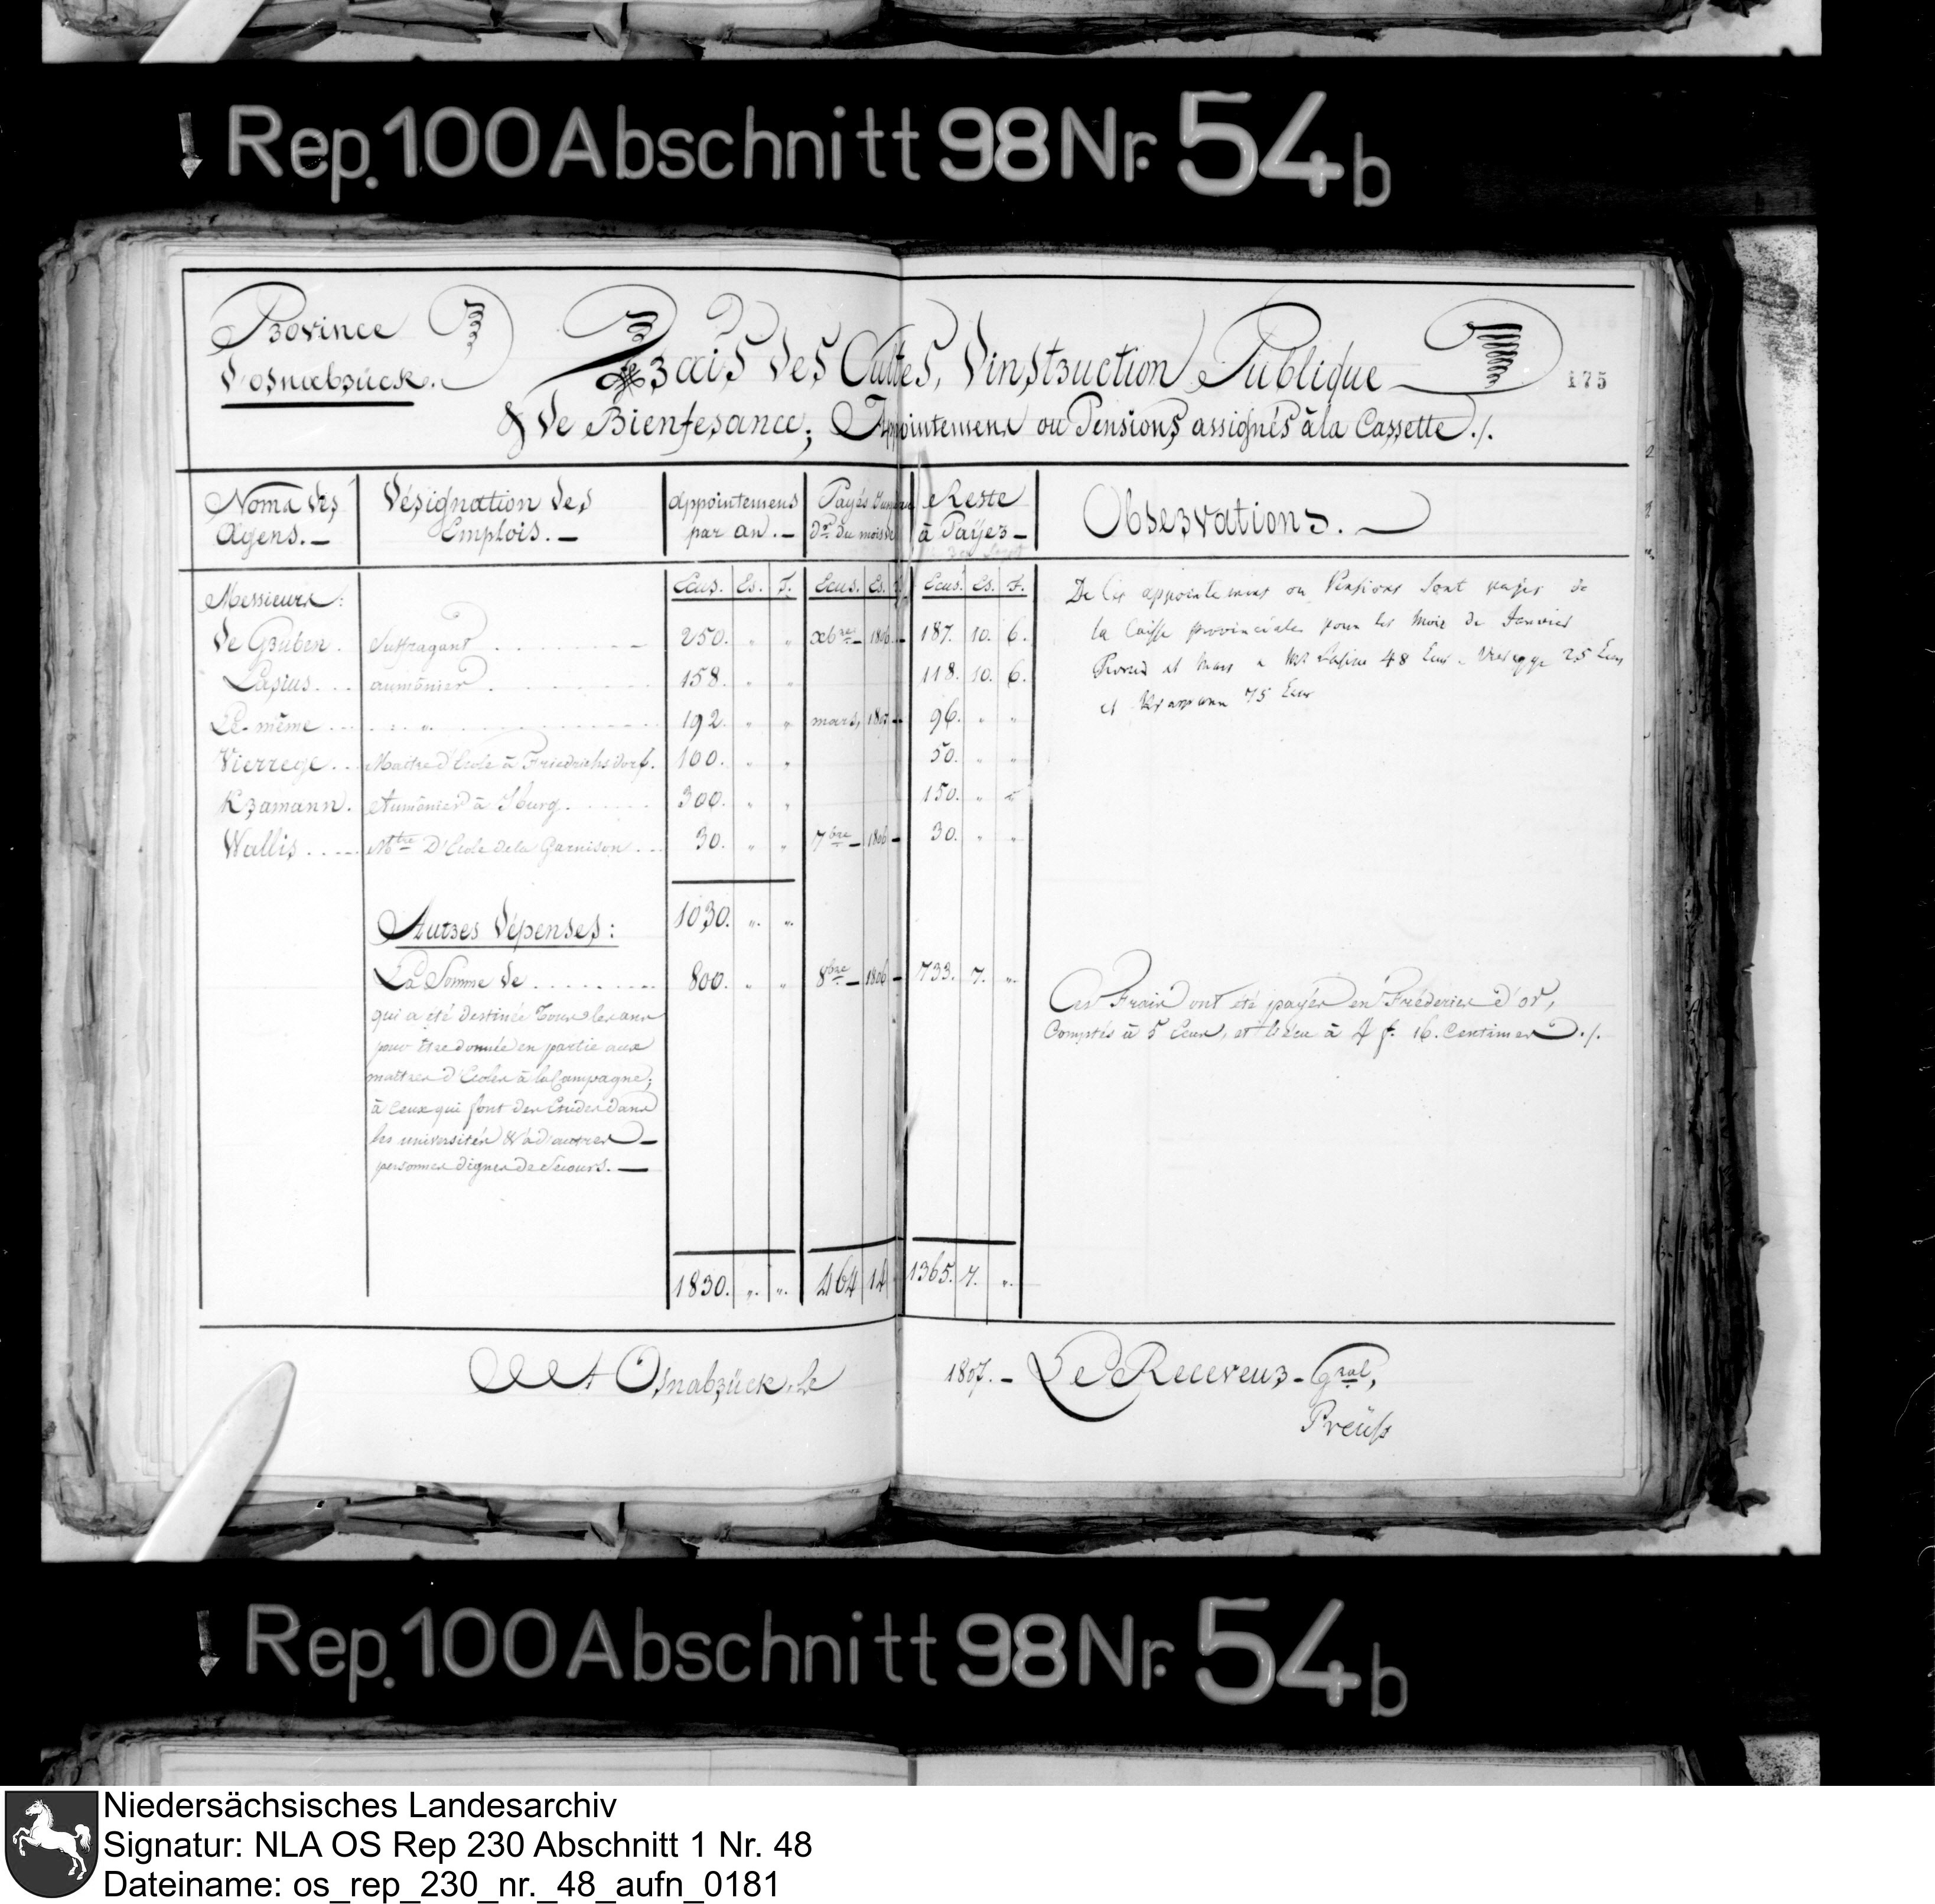 Rep. 100 Abschnitt 98 Nr. 54 b
Province
d'osnabrück.
Frais des Cultes, d'instruction Publique
175
& de Bienfesance; Appointemens ou Pensions assignés à la Cassette ./.
Noms des
Agens. —
Désignation des
Emplois. —
appointemens
par an. —
Payés
du mois de
Reste
à Payer —
Observations. —
Ecus. Es. F. Ecus. Es. Ecus. Es. F.
Messieurs:
de Gruben. Suffragant 250. " " xbre — 1806 — 187. 10. 6.
Lapius. aumônier. 158. " " 118. 10. 6.
Le même " 192. " " mars, 1807 — 96. " "
Vierrege. Maitre d'Ecole à Friedrichsdorf. 100. " " 50. " "
Kramann. Aumônier à Iburg. 300. " " 150. " "
Wallis Mtre D'Ecole de la Garnison 30. " " 7bre — 1806 — 30. " "
De Ces appointemens ou Pensions sont payés de
la Caisse provinciale pour les Mois de Janvier
et Mars a Mr 48 Ecus 25 Ecus
et Kramann 75 Ecus
1030. " "
Autres Dépenses:
La Somme de 800. " " 8bre — 1806 — 733. 7. "
qui a été destinée Tous les ans
pour être donnée en partie aux
maîtres d'Ecoles à la Campagne;
à Ceux qui font des Etudes dans
les universités & à d'autres —
personnes dignes de Secours. —
Ces Frais ont été payés en Fréderics d'or,
Comptés à 5 Ecus, et l'Ecu à 4 f. 16. Centimes ./.
1830. " " 464 14 1365. 7. "
A Osnabrück, le 1807. — Le Receveur - Gral,
Preüß
Rep. 100 Abschnitt 98 Nr. 54 b
Niedersächsisches Landesarchiv
Signatur: NLA OS Rep 230 Abschnitt 1 Nr. 48
Dateiname: os_rep_230_nr._48_aufn_0181